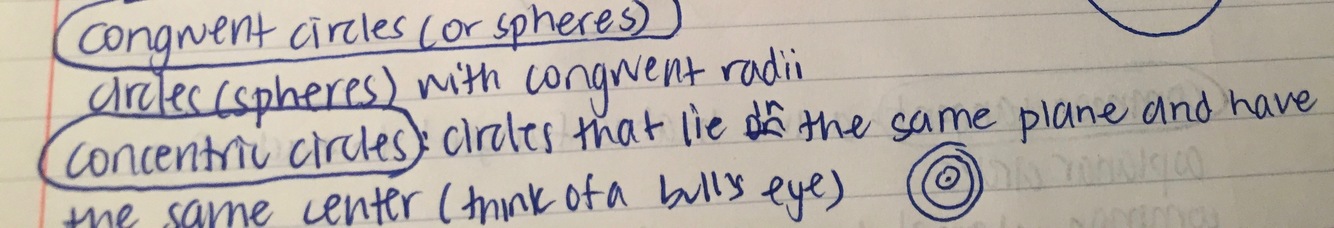 congruent circles (or spheres)
circles (spheres) with congruent radii
concentric circles: circles that lie in the same plane and have
the same center (think of a bull's eye)